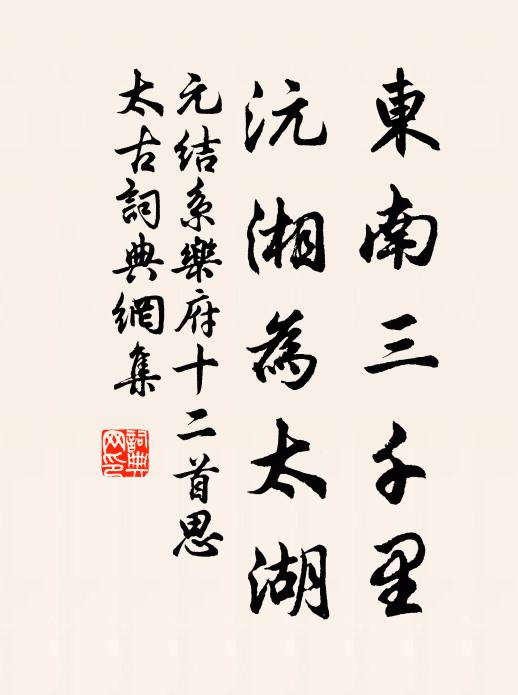 東南三千里
沅湘為太湖
元结系樂府十二首思
太古詞典網集
詞典
网印